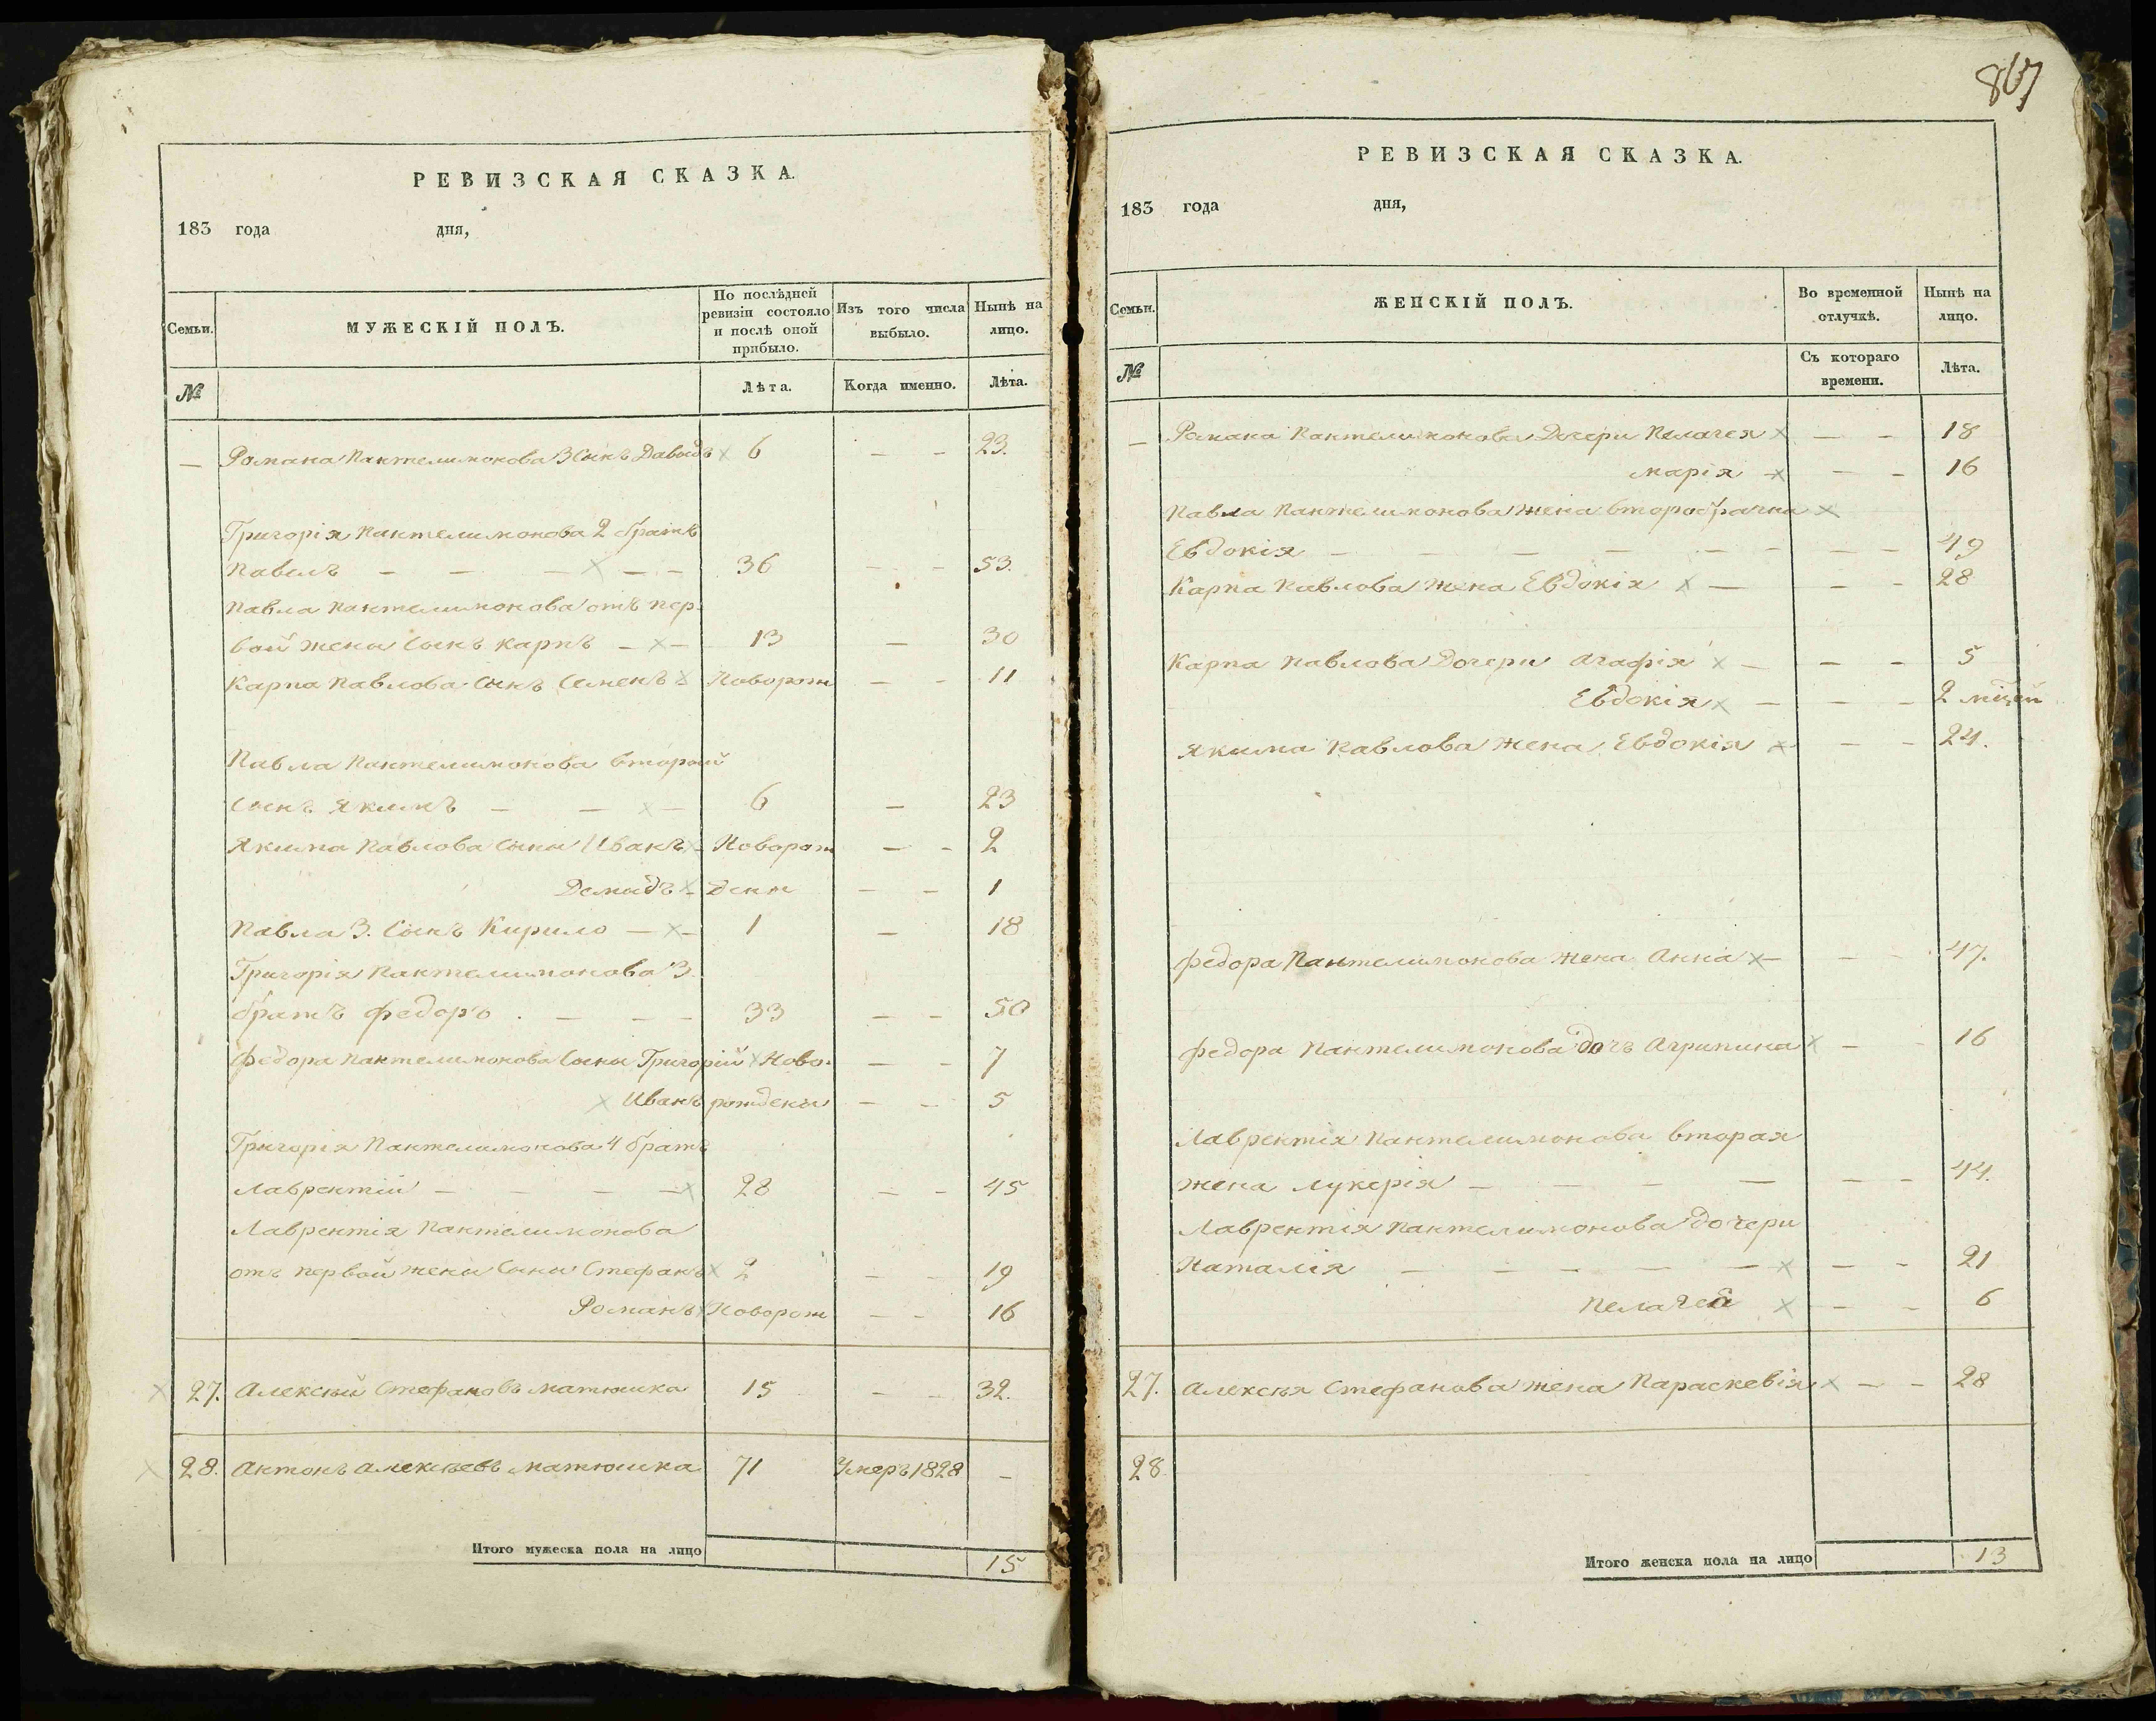 РЕВИЗСКАЯ СКАЗКА.
183 года дня,
Семьи. МУЖЕСКІЙ ПОЛЪ. По послѣдней ревизіи состояло и послѣ оной прибыло. Изъ того числа выбыло. Нынѣ на лицо.
№ Лѣта. Когда именно. Лѣта.
— Романа Пантелимонова 3 сынъ Давыдъ х 6 — — 23.
Григорія Пантелимонова 2 братъ
Павелъ — — — х — — 36 — — 53.
Павла Пантелимонова отъ пер-
вой жены сынъ Карпъ — х — 13 — 30
Карпа Павлова сынъ Семенъ х Новорож — — 11
Павла Пантелимонова второй
сынъ Якимъ — — х — 6 — 23
Якима Павлова сыны Иванъ х Новорож — — 2
Демидъ х дены — — 1
Павла 3. сынъ Кирило — х — 1 — 18
Григорія Пантелимонова 3.
братъ Федоръ . — — — 33 — — 50
Федора Пантелимонова сыны Григорій х Ново- — — 7
х Иванъ рождены — — 5
Григорія Пантелимонова 4 братъ
Лаврентій — — — — х 28 — — 45
Лаврентія Пантелимонова
отъ первой жены сыны Стефанъ х 2 — — 19
Романъ х Новорож — — 16
х 27. Алексѣй Стефановъ Матюшка 15 — — 32.
х 28. Антонъ Алексѣевъ Матюшка 71 Умеръ 1828 —
Итого мужеска пола на лицо 15
867
РЕВИЗСКАЯ СКАЗКА.
183 года дня,
Семьи. ЖЕНСКІЙ ПОЛЪ. Во временной отлучкѣ. Нынѣ на лицо.
№ Съ котораго времени. Лѣта.
— Романа Пантелимонова Дочери Пелагея х — — 18
Марія х — — 16
Павла Пантелимонова жена второбрачна х
Евдокія — — — — — — — — 49
Карпа Павлова жена Евдокія х — — — 28
Карпа Павлова Дочери Агафія х — — — 5
Евдокія х — — — 2 мѣсяц
Якима Павлова жена Евдокія х — — 24.
Федора Пантелимонова жена Анна х — — — 47.
Федора Пантелимонова дочъ Агрипина х — — 16
Лаврентія Пантелимонова вторая
жена Лукерія — — — — — — 44.
Лаврентія Пантелимонова дочери
Наталія — — — — — х — — 21
Пелагея х — — 6
27. Алексѣя Стефанова жена Параскевія х — — 28
28.
Итого женска пола на лицо 13